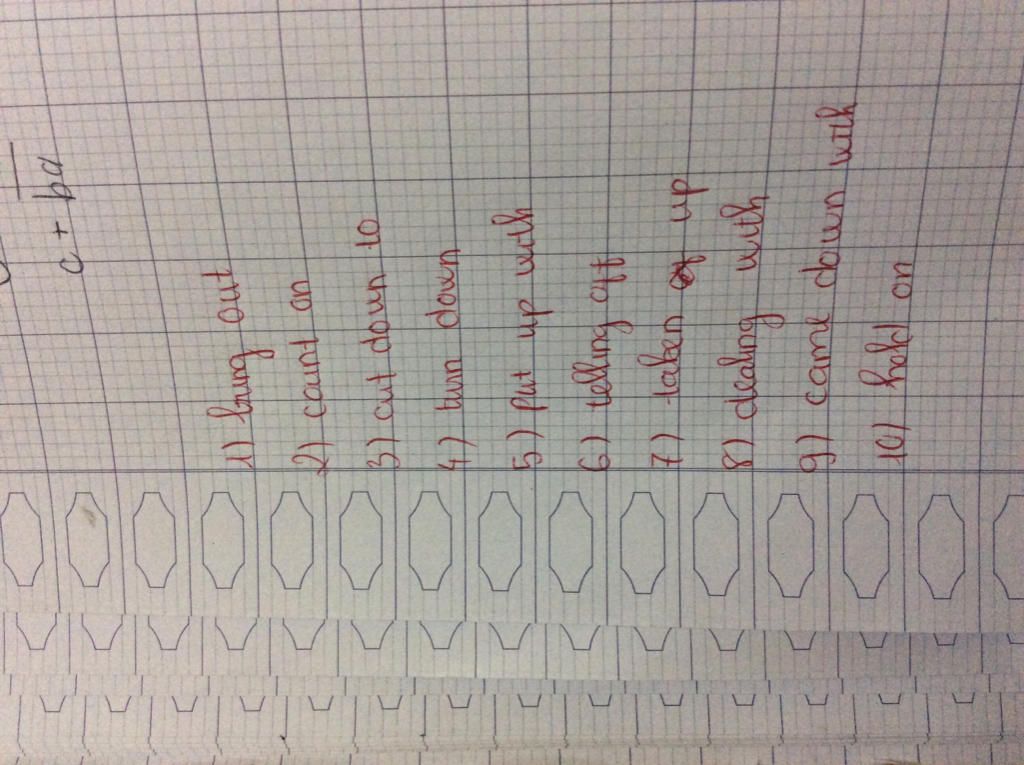 c + ba
1) bring out
2) count on
3) cut down to
4) turn down
5) put up with
6) telling off
7) taken up
8) dealing with
9) came down with
10) hold on